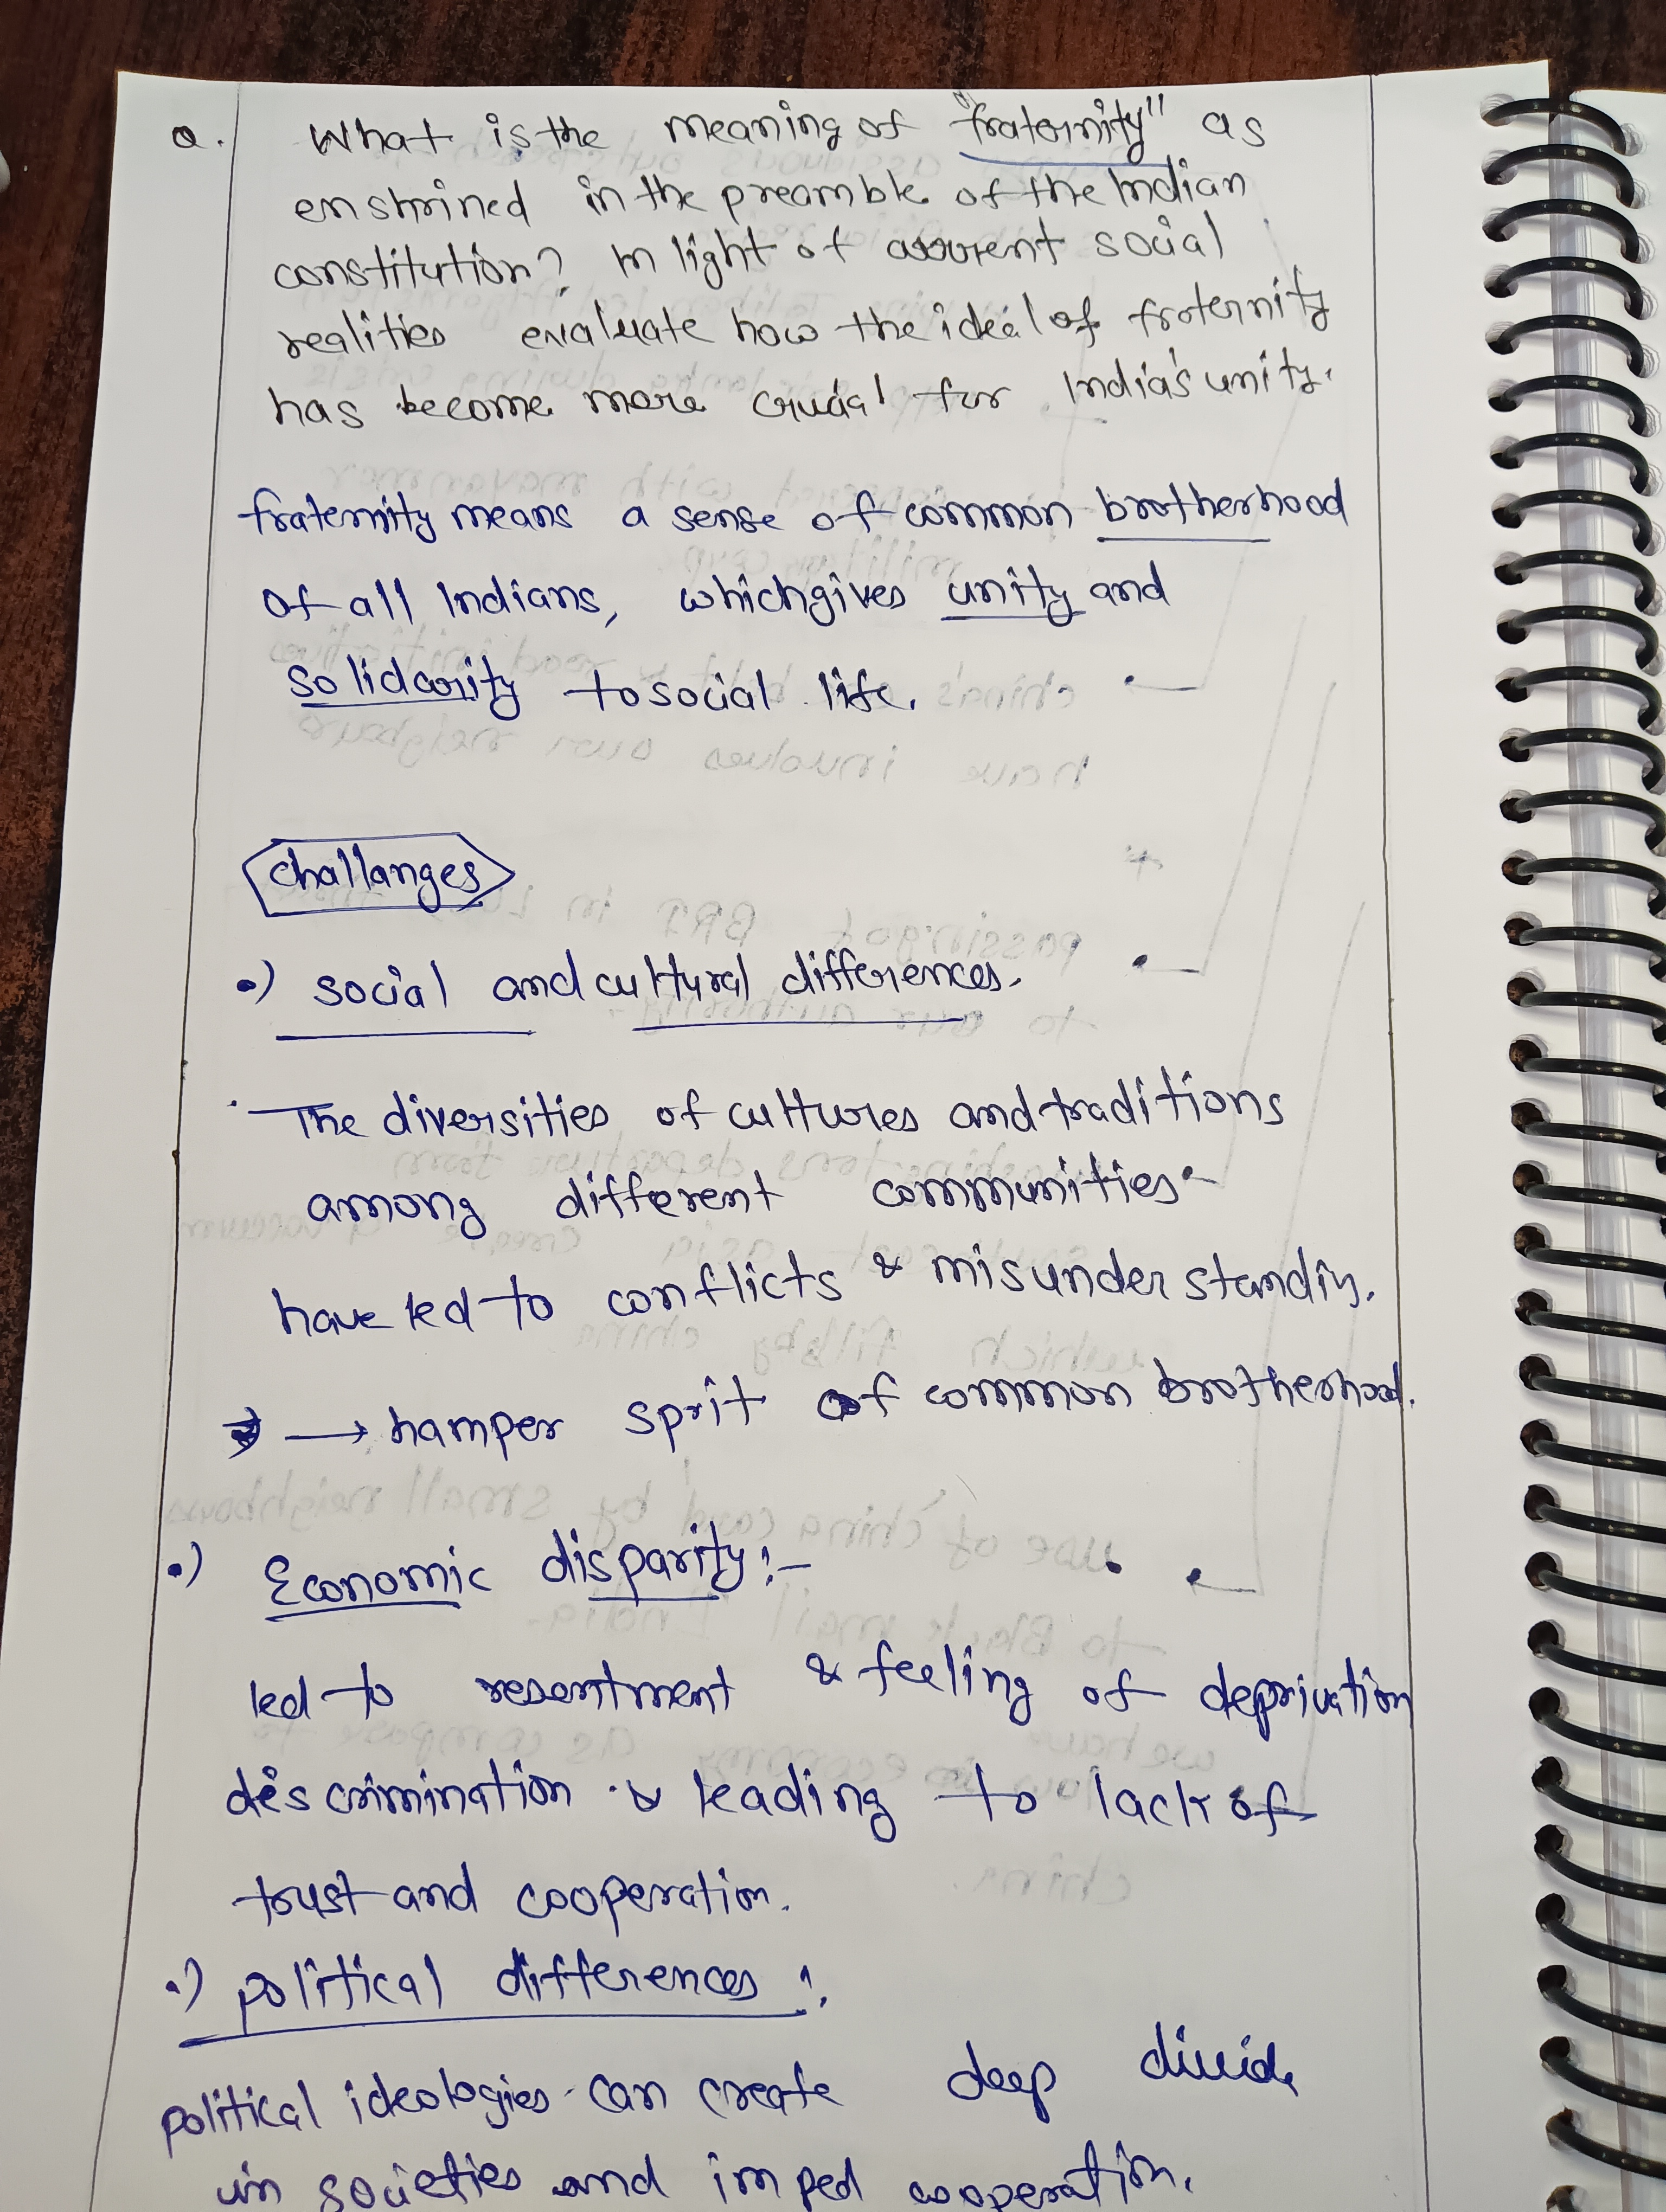 Q. What is the meaning of "fraternity" as
enshrined in the preamble of the Indian
constitution? In light of current social
realities evaluate how the ideal of fraternity
has become more crucial for India's unity.
fraternity means a sense of common brotherhood
of all Indians, which gives unity and
solidarity to social life.
challanges
•) social and cultural differences.
The diversities of cultures and traditions
among different communities
have led to conflicts & misunderstandin.
→ hamper sprit of common brotherhood.
•) Economic disparity:-
led to resentment & feeling of deprivation
discrimination & leading to lack of
trust and cooperation.
•) political differences:
political ideologies can create deep divide
in societies and imped cooperation.